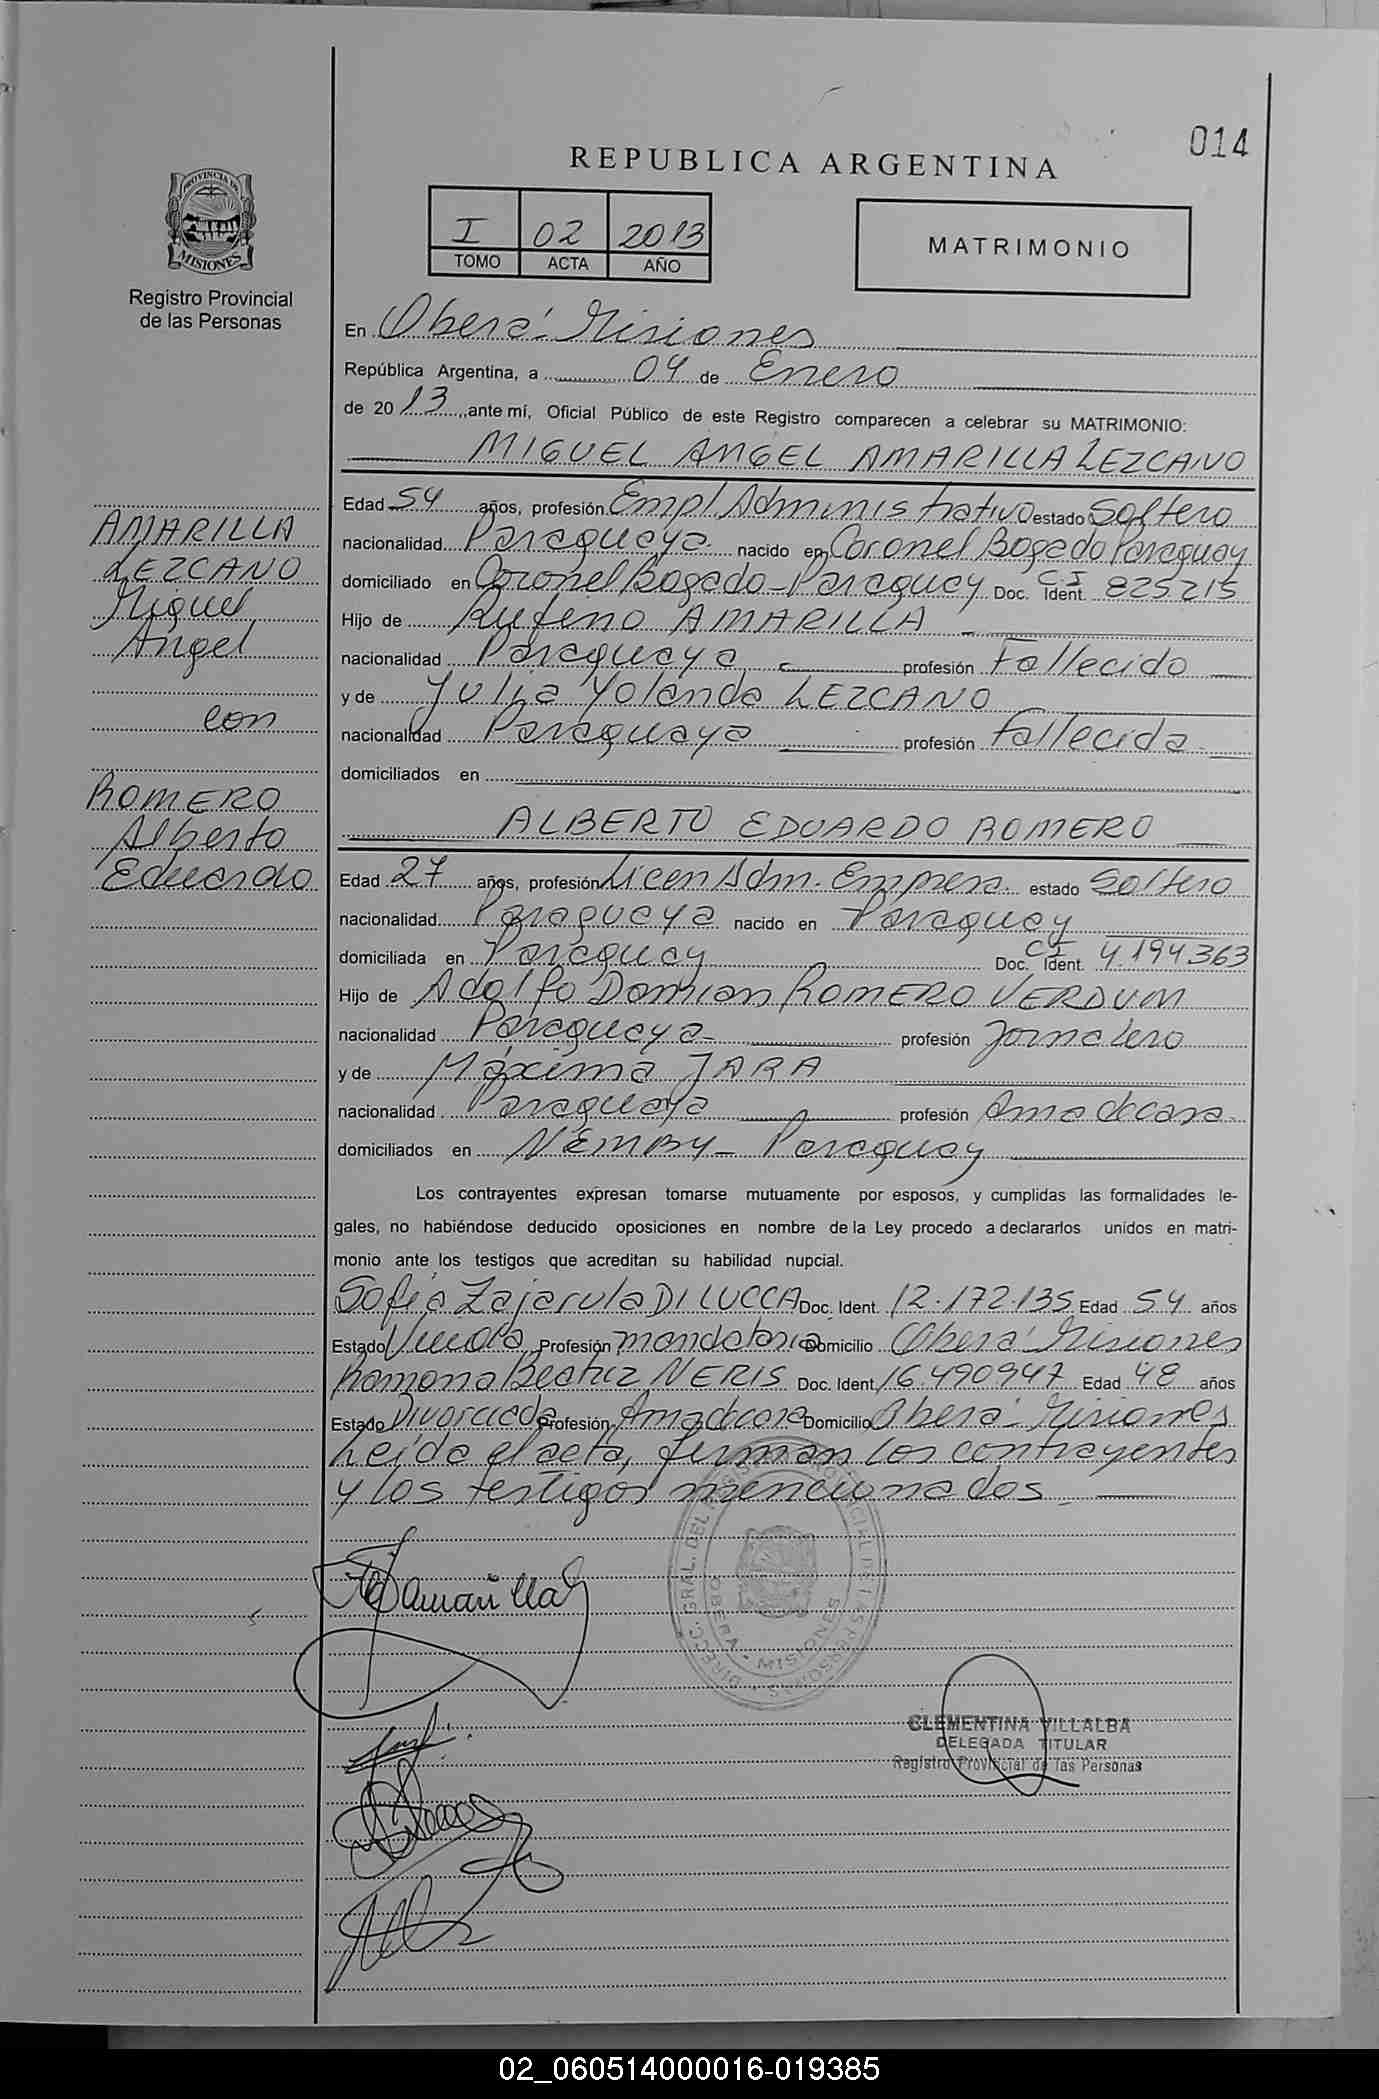 014
REPUBLICA ARGENTINA
I 02 2013
TOMO ACTA AÑO
MATRIMONIO
PROVINCIA DE
MISIONES
Registro Provincial
de las Personas
En Oberá - Misiones
República Argentina, a 04 de Enero
de 2013, ante mí, Oficial Público de este Registro comparecen a celebrar su MATRIMONIO:
MIGUEL ANGEL AMARILLA LEZCANO
Edad 54 años, profesión Empl Administrativo estado Soltero
nacionalidad Paraguaya nacido en Coronel Bogado Paraguay
domiciliado en Coronel Bogado - Paraguay Doc. Ident. CI 825215
Hijo de Rufino AMARILLA
nacionalidad Paraguaya profesión Fallecido
y de Julia Yolanda LEZCANO
nacionalidad Paraguaya profesión Fallecida
domiciliados en
ALBERTO EDUARDO ROMERO
Edad 27 años, profesión Licen Adm. Empresa estado Soltero
nacionalidad Paraguaya nacido en Paraguay
domiciliada en Paraguay Doc. Ident. CI 4.194.363
Hijo de Adolfo Damian ROMERO VERDUM
nacionalidad Paraguaya profesión Jornalero
y de Máxima JARA
nacionalidad Paraguaya profesión Ama de casa
domiciliados en ÑEMBY - Paraguay
Los contrayentes expresan tomarse mutuamente por esposos, y cumplidas las formalidades le-
gales, no habiéndose deducido oposiciones en nombre de la Ley procedo a declararlos unidos en matri-
monio ante los testigos que acreditan su habilidad nupcial.
Sofia Zajarula DI LUCCA Doc. Ident. 12.172.135 Edad 54 años
Estado Viuda Profesión mandataria Domicilio Oberá - Misiones
Ramona Beatriz NERIS Doc. Ident. 16.490947 Edad 48 años
Estado Divorciada Profesión Ama de casa Domicilio Oberá - Misiones
Leída el acta, firman los contrayentes
y los testigos mencionados
AMARILLA
LEZCANO
Miguel
Angel
con
ROMERO
Alberto
Eduardo
Amarilla
DIRECC. GRAL. DEL REGISTRO PROVINCIAL DE LAS PERSONAS
OBERA - MISIONES
CLEMENTINA VILLALBA
DELEGADA TITULAR
Registro Provincial de las Personas
02_060514000016-019385